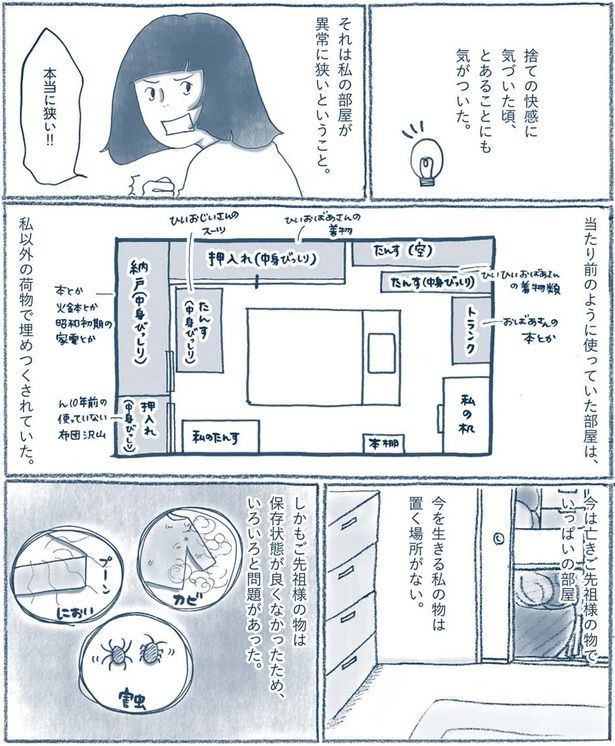 捨ての快感に
気づいた頃、
とあることにも
気がついた。
それは私の部屋が
異常に狭いということ。
本当に狭い!!
当たり前のように使っていた部屋は、
ひいおじいさんの
スーツ
ひいおばあさんの
着物
押入れ(中身びっしり)
たんす(空)
たんす(中身びっしり)
ひいひいおばあさん
の着物類
トランク
おばあさんの
本とか
納戸(中身びっしり)
たんす
(中身びっしり)
本とか
火鉢とか
昭和初期の
家電とか
押入れ
(中身びっしり)
ん10年前の
使っていない
布団沢山
私のたんす
本棚
私の机
私以外の荷物で埋めつくされていた。
今は亡きご先祖様の物で
いっぱいの部屋
今を生きる私の物は
置く場所がない。
しかもご先祖様の物は
保存状態が良くなかったため、
いろいろと問題があった。
カビ
プーン
におい
害虫